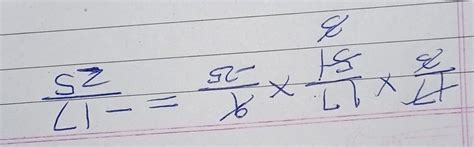 17/3 × 17/51 × 9/-25 = -17/25
3